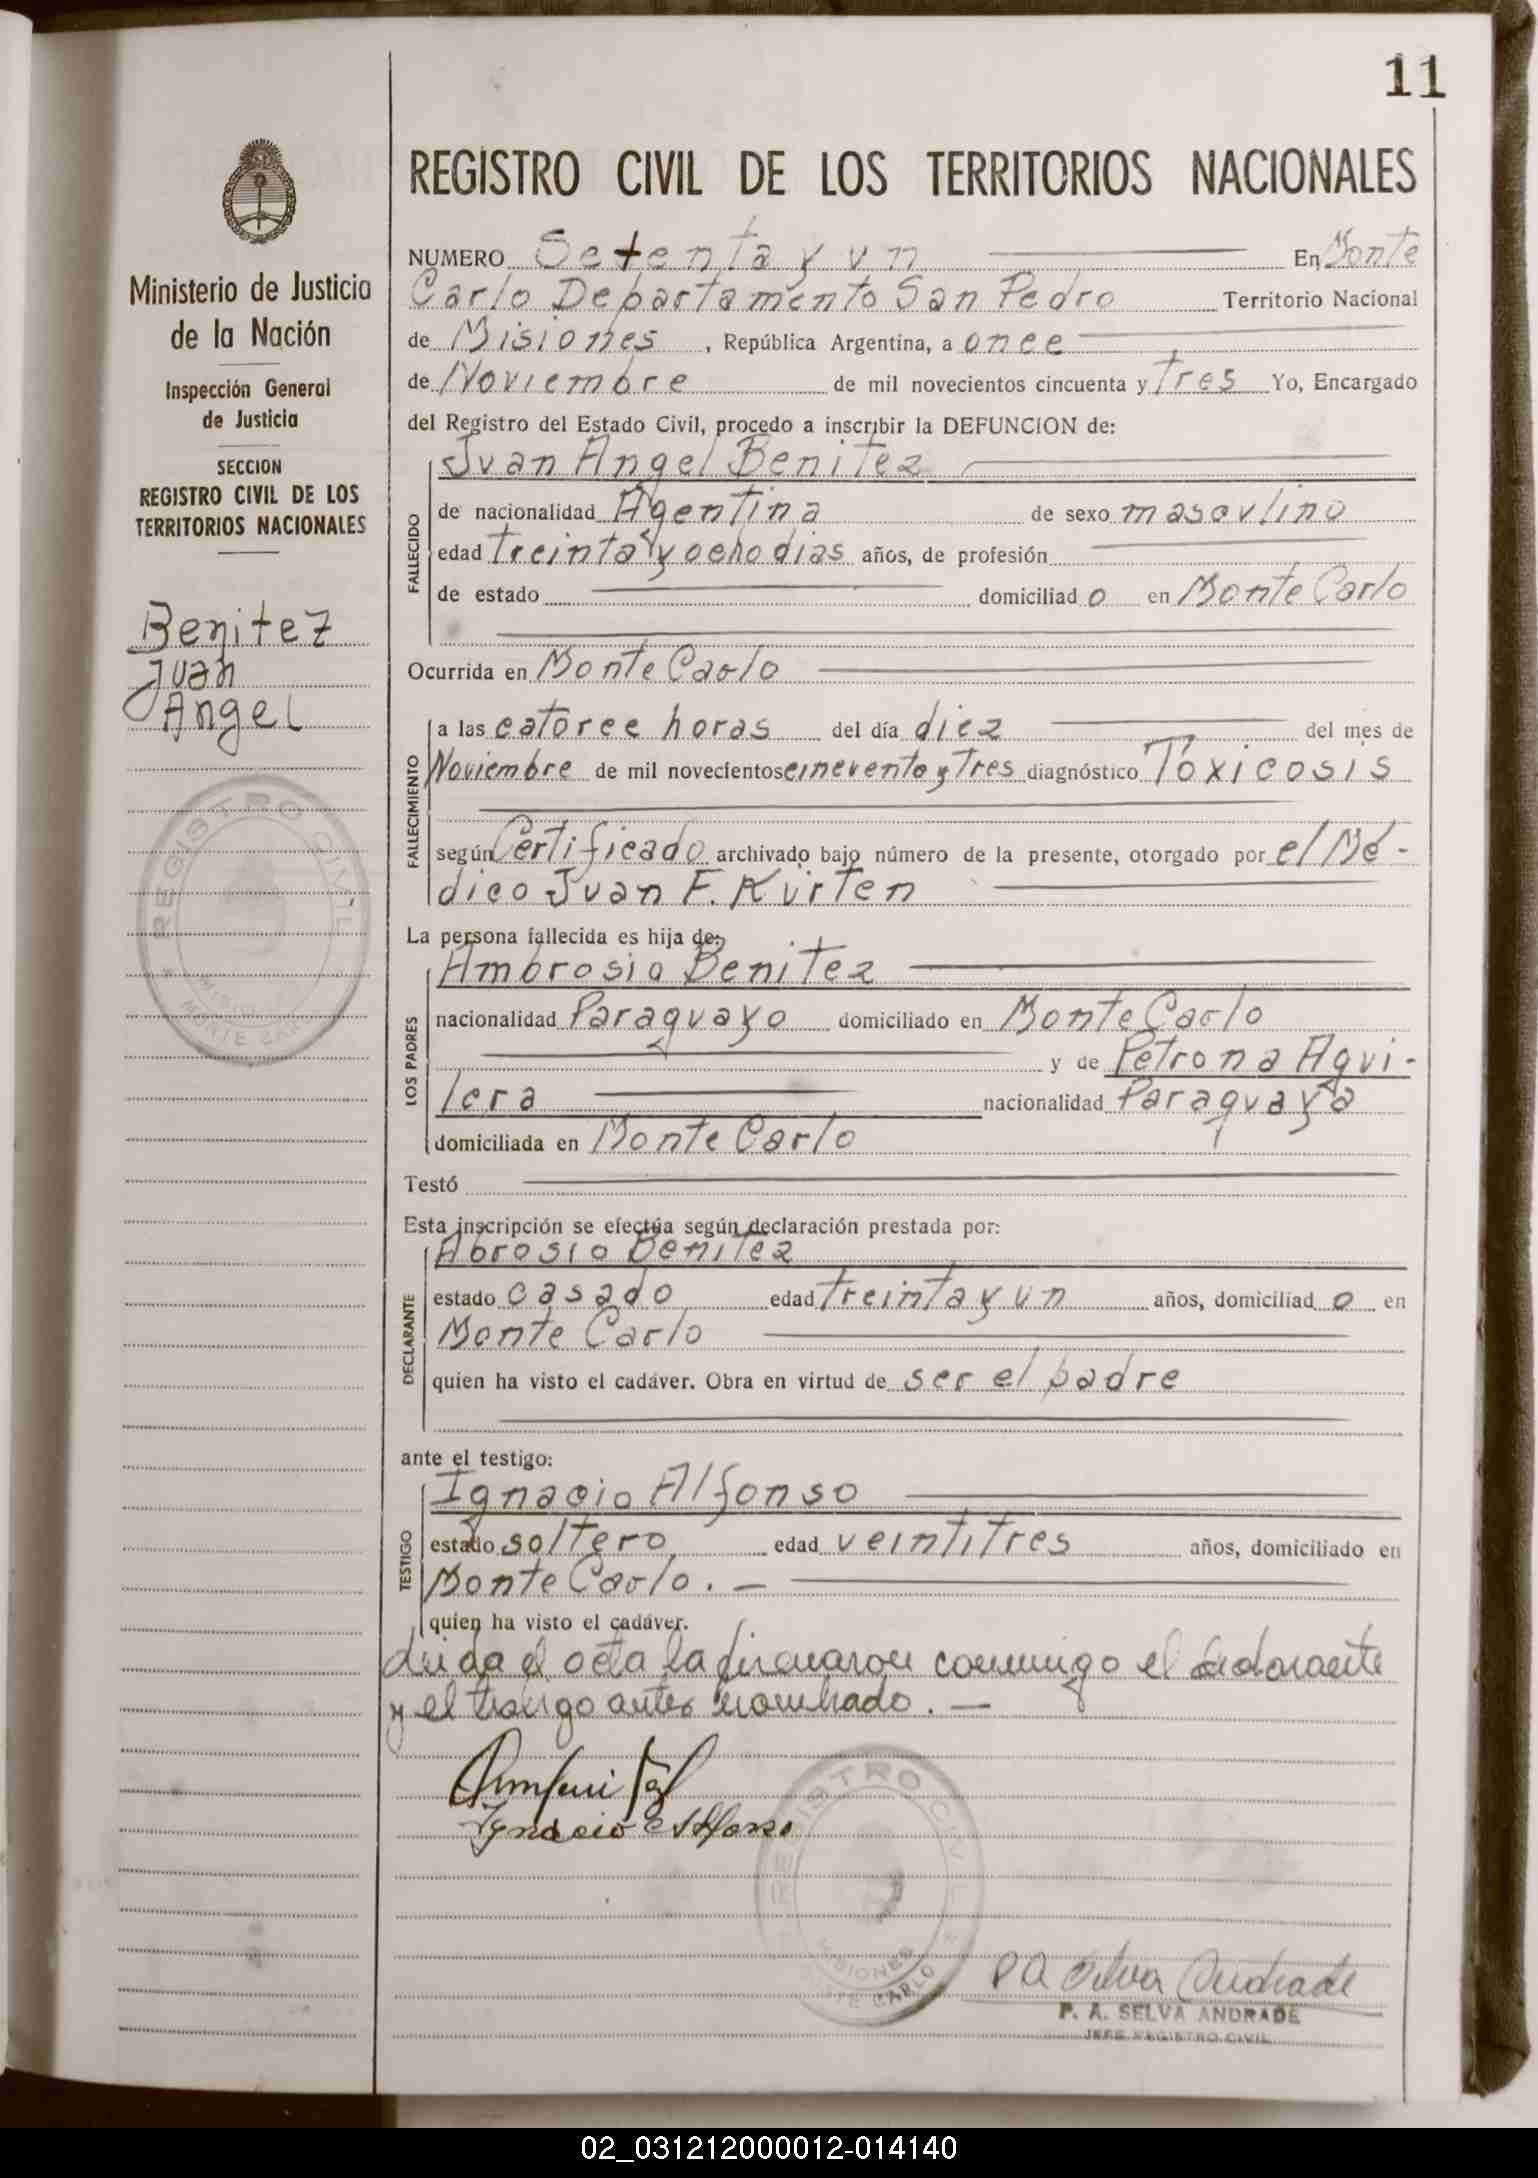 11
REGISTRO CIVIL DE LOS TERRITORIOS NACIONALES
Ministerio de Justicia
de la Nación
Inspección General
de Justicia
SECCION
REGISTRO CIVIL DE LOS
TERRITORIOS NACIONALES
Benitez
Juan
Angel
REGISTRO CIVIL
MISIONES
MONTE CARLO
NUMERO Setenta y un En Monte
Carlo Departamento San Pedro Territorio Nacional
de Misiones, República Argentina, a once
de Noviembre de mil novecientos cincuenta y tres Yo, Encargado
del Registro del Estado Civil, procedo a inscribir la DEFUNCION de:
Juan Angel Benitez
FALLECIDO
de nacionalidad Agentina de sexo masculino
edad treinta y ocho dias años, de profesión
de estado domiciliad o en Monte Carlo
Ocurrida en Monte Carlo
FALLECIMIENTO
a las catorce horas del día diez del mes de
Noviembre de mil novecientos cincuento y Tres diagnóstico Toxicosis
según Certificado archivado bajo número de la presente, otorgado por el Mé-
dico Juan F. Kürten
La persona fallecida es hija de:
LOS PADRES
Ambrosio Benitez
nacionalidad Paraguayo domiciliado en Monte Carlo
y de Petrona Agui-
lera nacionalidad Paraguaya
domiciliada en Monte Carlo
Testó
Esta inscripción se efectúa según declaración prestada por:
DECLARANTE
Abrosio Benitez
estado casado edad treinta y un años, domiciliad o en
Monte Carlo
quien ha visto el cadáver. Obra en virtud de ser el padre
ante el testigo:
TESTIGO
Ignacio Alfonso
estado soltero edad veintitres años, domiciliado en
Monte Carlo. —
quien ha visto el cadáver.
Leida el acta la firmaron conmigo el declarante
y el testigo antes nombrado. —
Ignacio Alfonso
REGISTRO CIVIL
MISIONES
MONTE CARLO
P A Selva Andrade
P. A. SELVA ANDRADE
JEFE REGISTRO CIVIL
02_031212000012-014140